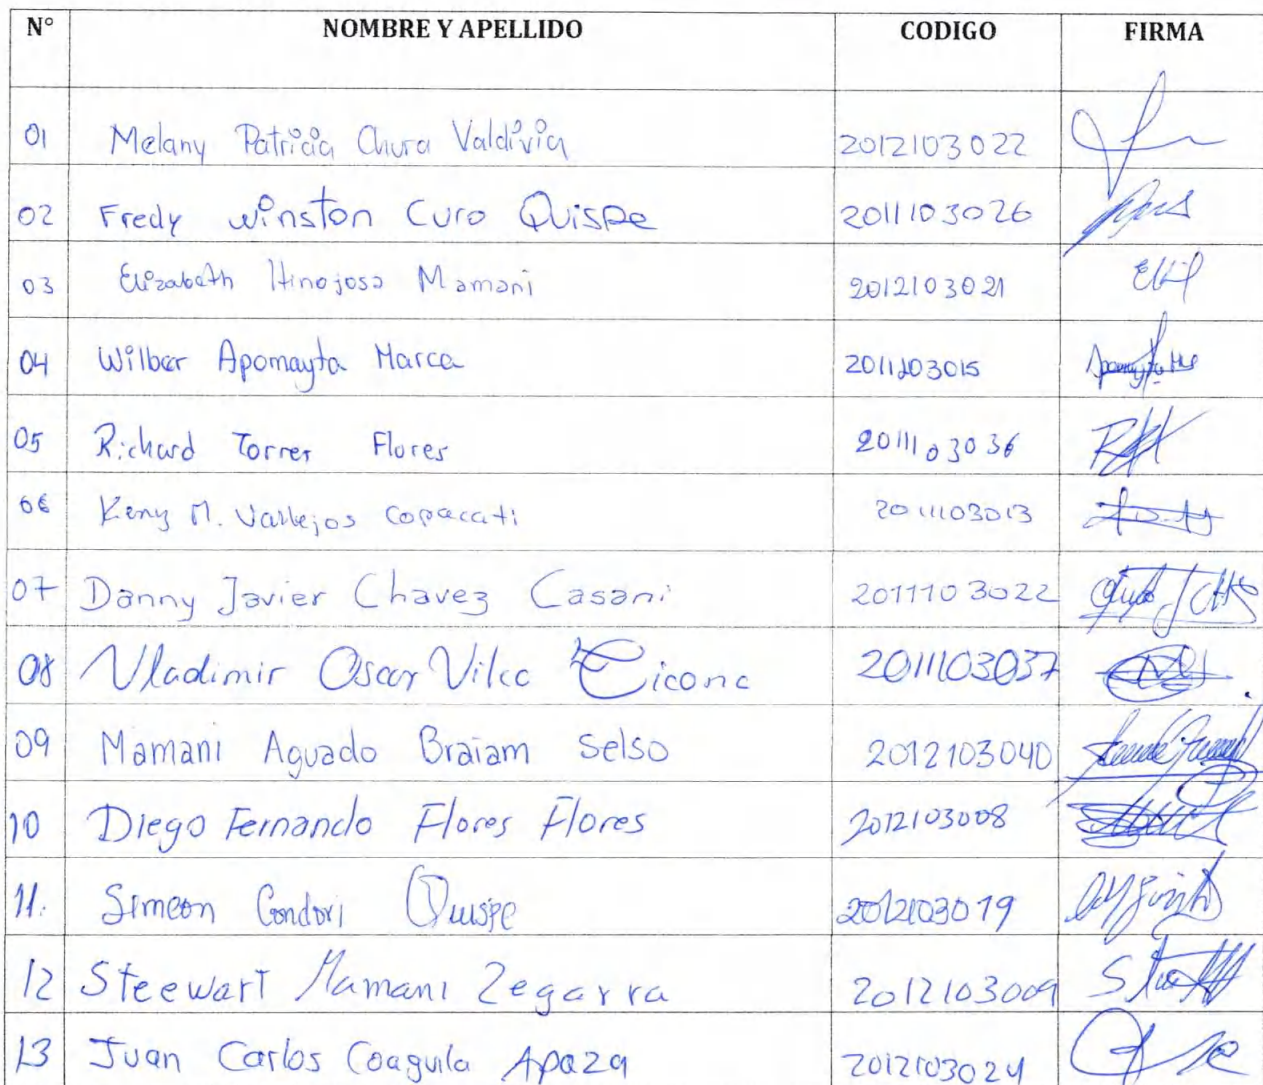 N° NOMBRE Y APELLIDO CODIGO FIRMA
01 Melany Patricia Chura Valdivia 2012103022
02 Fredy Winston Curo Quispe 2011103026
03 Elizabeth Hinojosa Mamani 2012103021
04 Wilber Apomayta Marca 2011103015
05 Richard Torres Flores 2011103036
06 Keny M. Vallejos Copacati 2011103013
07 Danny Javier Chavez Casani 2011103022
08 Vladimir Oscar Vilca Ticona 2011103037
09 Mamani Aguado Braiam Selso 2012103040
10 Diego Fernando Flores Flores 2012103008
11. Simeon Condori Quispe 2012103019
12 Steewart Mamani Zegarra 2012103009
13 Juan Carlos Coaguila Apaza 2012103024